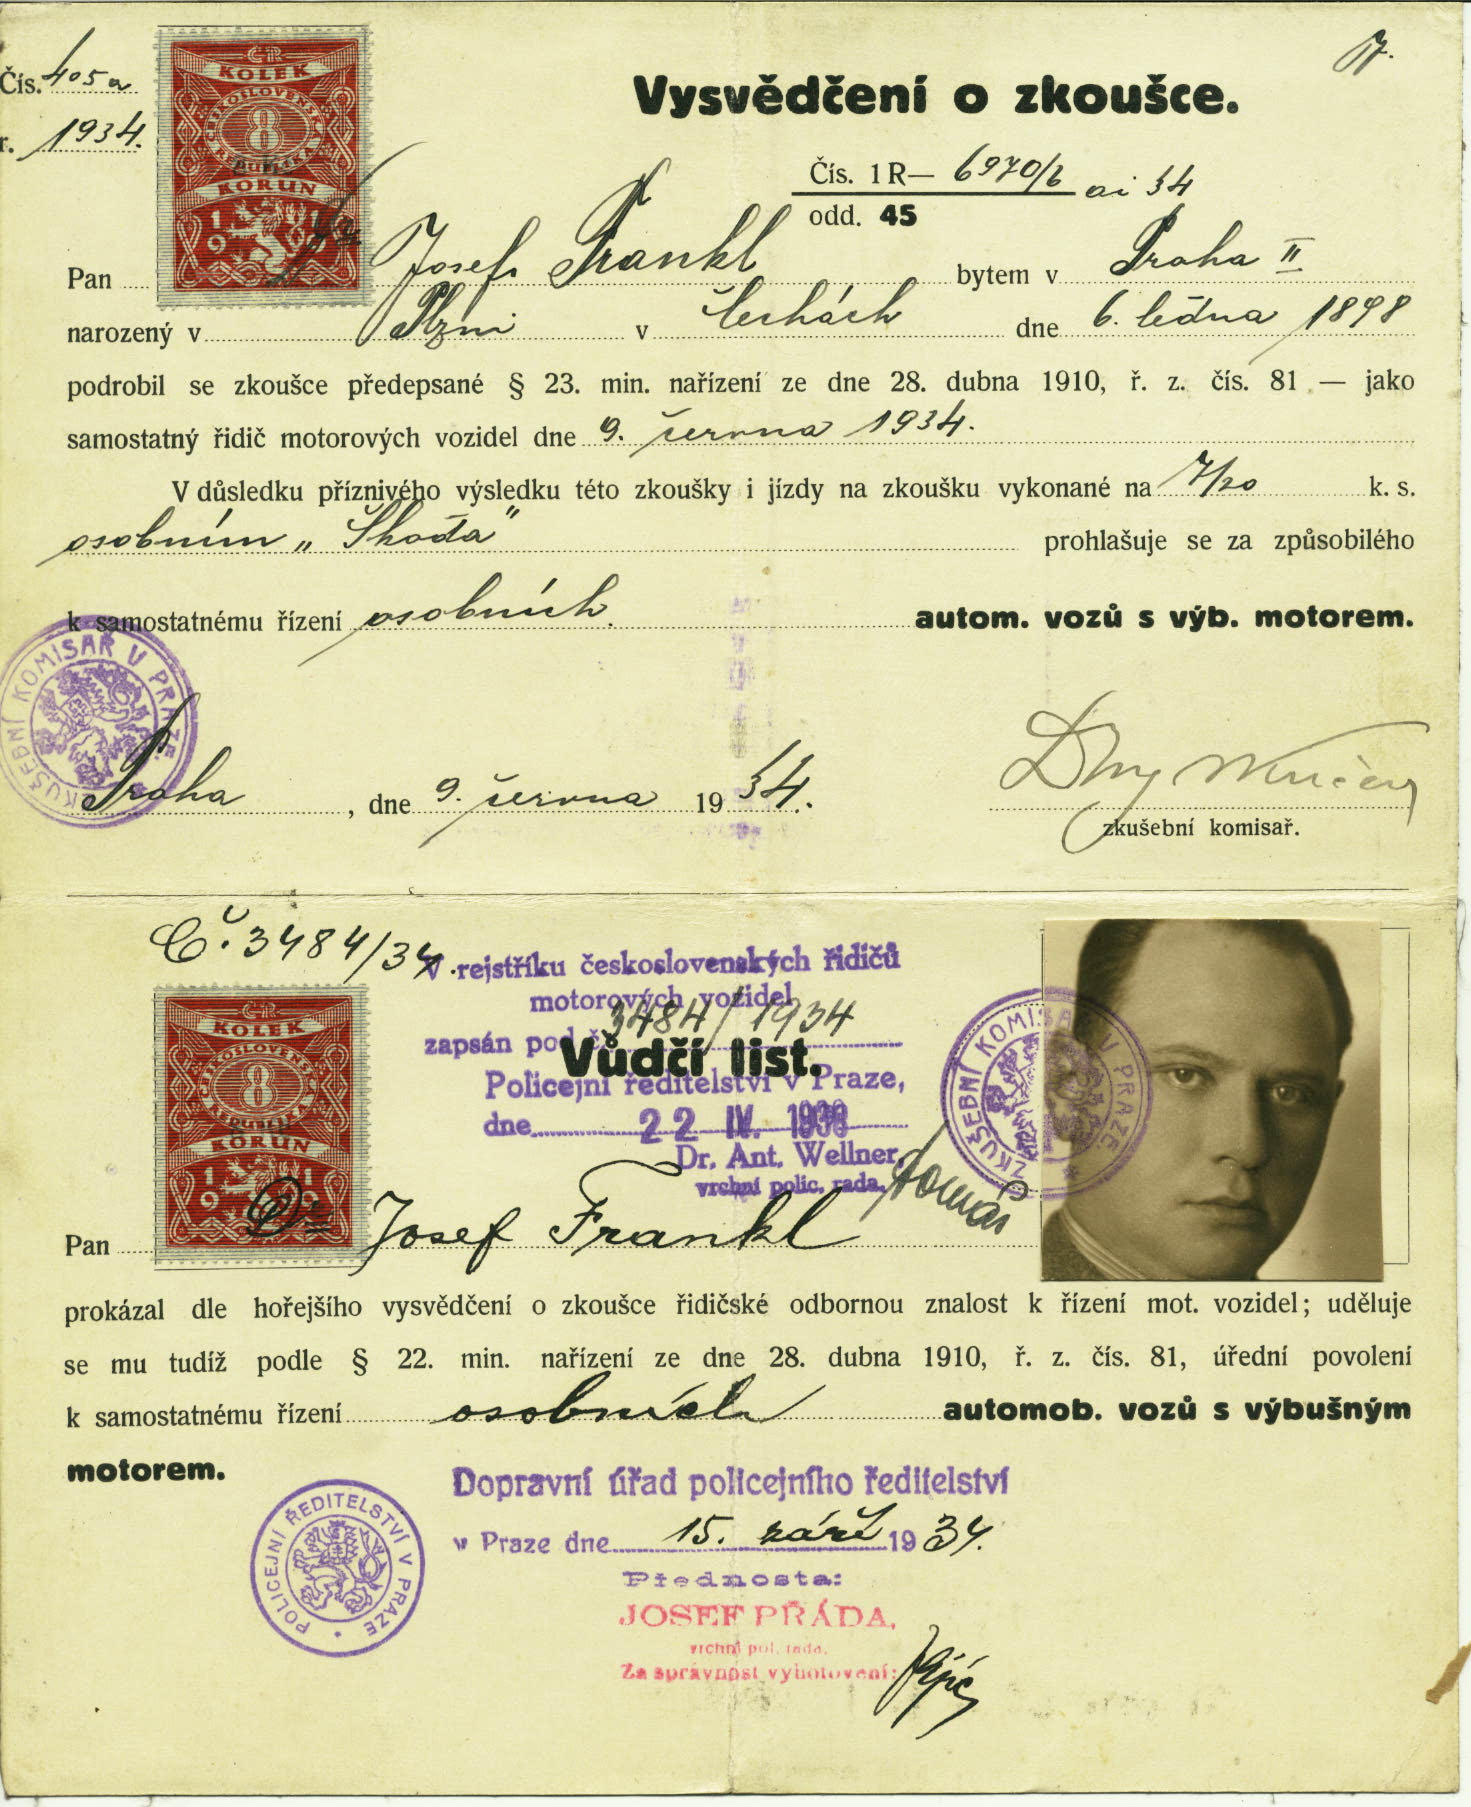 Čís. 405a
r. 1934.
ČR
KOLEK
ČESKOSLOVENSKÁ
8
REPUBLIKA
KORUN
1919
Vysvědčení o zkoušce.
Čís. 1 R— 6970/6 ai 34
odd. 45
Pan Josef Frankl bytem v Praha II
narozený v Plzni v Čechách dne 6. ledna 1898
podrobil se zkoušce předepsané § 23. min. nařízení ze dne 28. dubna 1910, ř. z. čís. 81 — jako
samostatný řidič motorových vozidel dne 9. června 1934.
V důsledku příznivého výsledku této zkoušky i jízdy na zkoušku vykonané na 7/20 k. s.
osobním „Škoda" prohlašuje se za způsobilého
k samostatnému řízení osobních. autom. vozů s výb. motorem.
ZKUŠEBNÍ KOMISAŘ V PRAZE.
Praha, dne 9. června 1934.
zkušební komisař.
Č. 3484/34.
V rejstříku československých řidičů
motorových vozidel
3484/1934
zapsán pod č.
Vůdčí list.
Policejní ředitelství v Praze,
dne 22 IV. 1938
Dr. Ant. Wellner,
vrchní polic. rada.
ČR
KOLEK
ČESKOSLOVENSKÁ
8
REPUBLIKA
KORUN
1919
ZKUŠEBNÍ KOMISAŘ V PRAZE.
Pan Josef Frankl
prokázal dle hořejšího vysvědčení o zkoušce řidičské odbornou znalost k řízení mot. vozidel; uděluje
se mu tudíž podle § 22. min. nařízení ze dne 28. dubna 1910, ř. z. čís. 81, úřední povolení
k samostatnému řízení osobních automob. vozů s výbušným
motorem.
POLICEJNÍ ŘEDITELSTVÍ V PRAZE
Dopravní úřad policejního ředitelství
v Praze dne 15. září 1934.
Přednosta:
JOSEF PŘÁDA,
vrchní pol. rada.
Za správnost vyhotovení: